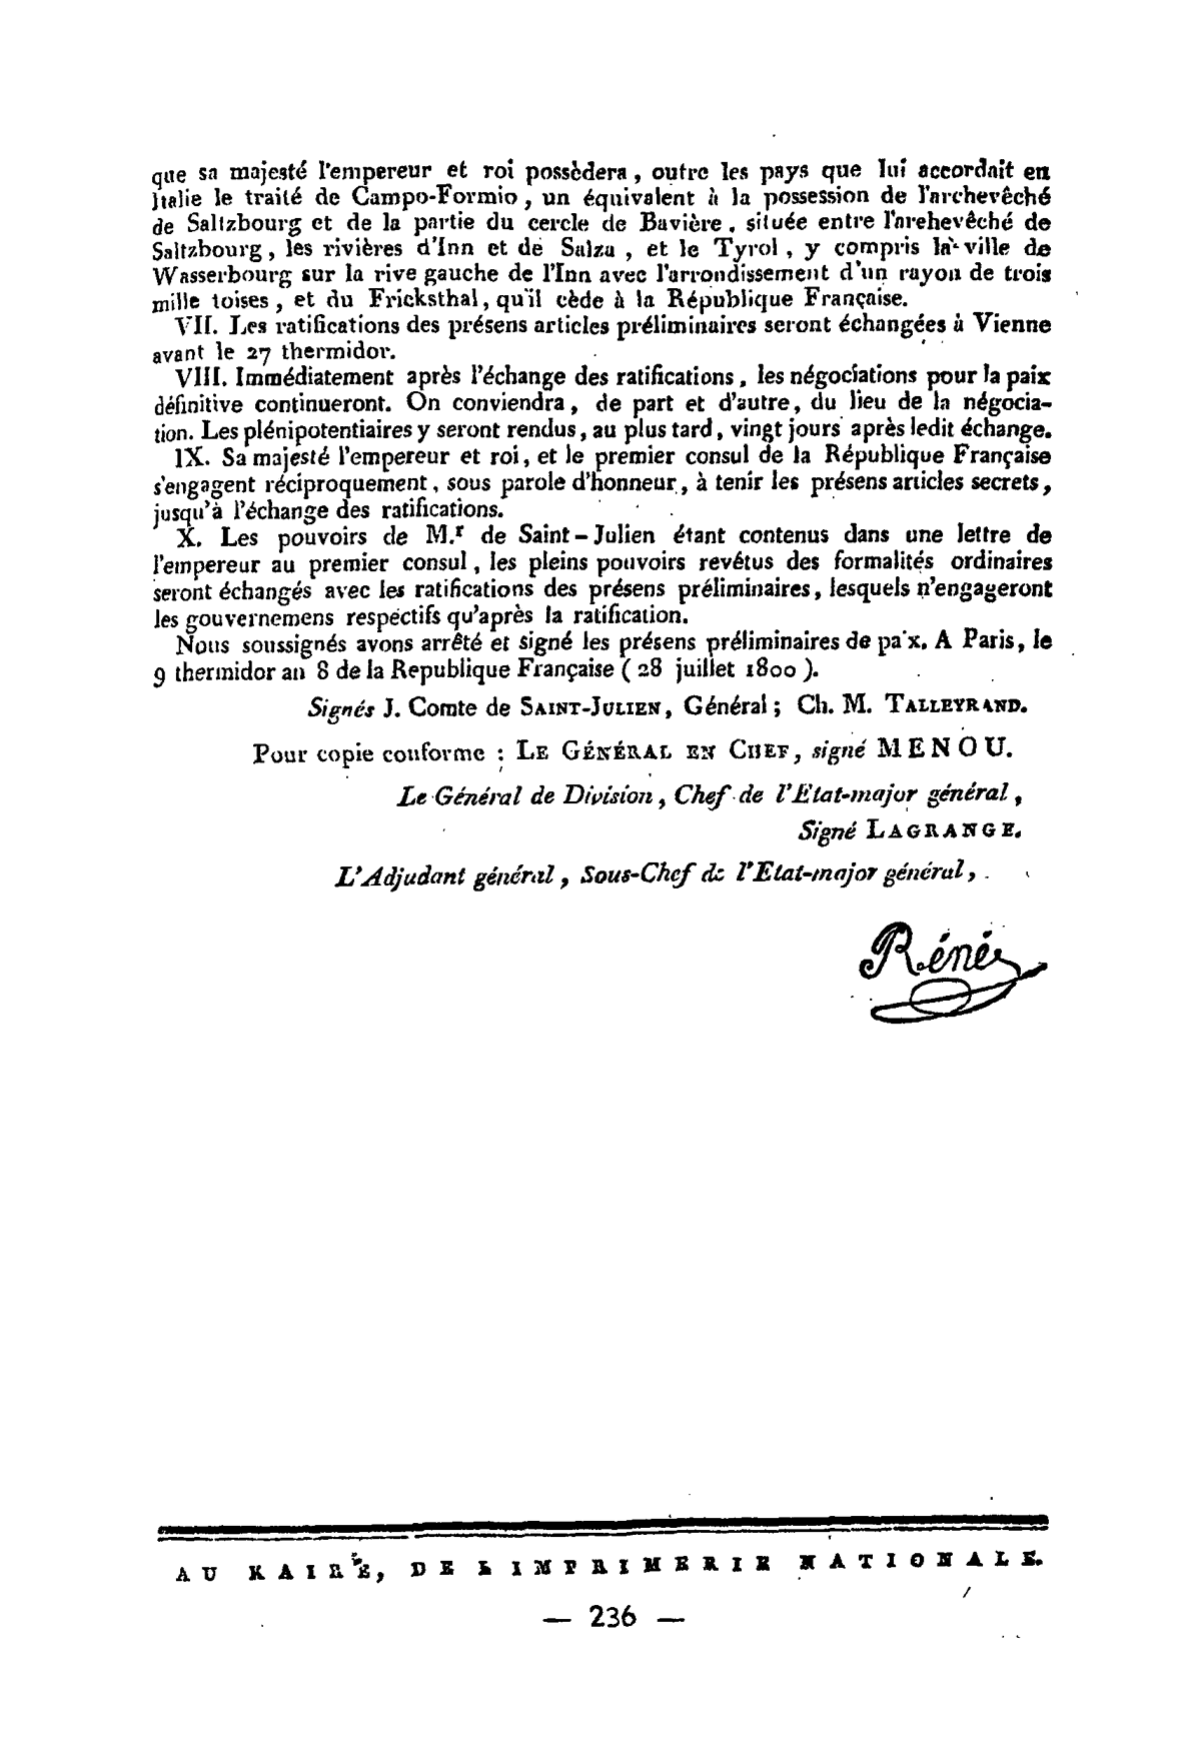 que sa majesté l'empereur et roi possèdera, outre les pays que lui accordait en
Italie le traité de Campo-Formio, un équivalent à la possession de l'archevêché
de Saltzbourg et de la partie du cercle de Bavière, située entre l'arehevêché de
Saltzbourg, les rivières d'Inn et de Salza, et le Tyrol, y compris la ville de
Wasserbourg sur la rive gauche de l'Inn avec l'arrondissement d'un rayon de trois
mille toises, et du Fricksthal, qu'il cède à la République Française.
VII. Les ratifications des présens articles préliminaires seront échangées à Vienne
avant le 27 thermidor.
VIII. Immédiatement après l'échange des ratifications, les négociations pour la paix
définitive continueront. On conviendra, de part et d'autre, du lieu de la négocia-
tion. Les plénipotentiaires y seront rendus, au plus tard, vingt jours après ledit échange.
IX. Sa majesté l'empereur et roi, et le premier consul de la République Française
s'engagent réciproquement, sous parole d'honneur, à tenir les présens articles secrets,
jusqu'à l'échange des ratifications.
X. Les pouvoirs de M.r de Saint-Julien étant contenus dans une lettre de
l'empereur au premier consul, les pleins pouvoirs revétus des formalités ordinaires
seront échangés avec les ratifications des présens préliminaires, lesquels n'engageront
les gouvernemens respectifs qu'après la ratification.
Nous soussignés avons arrêté et signé les présens préliminaires de paix. A Paris, le
9 thermidor an 8 de la Republique Française (28 juillet 1800).
Signés J. Comte de SAINT-JULIEN, Général; Ch. M. TALLEYRAND.
Pour copie conforme : LE GÉNÉRAL EN CHEF, signé MENOU.
Le Général de Division, Chef de l'Etat-major général,
Signé LAGRANGE.
L'Adjudant général, Sous-Chef de l'Etat-major général,
Réné
AU KAIRE, DE L IMPRIMERIE NATIONALE.
— 236 —